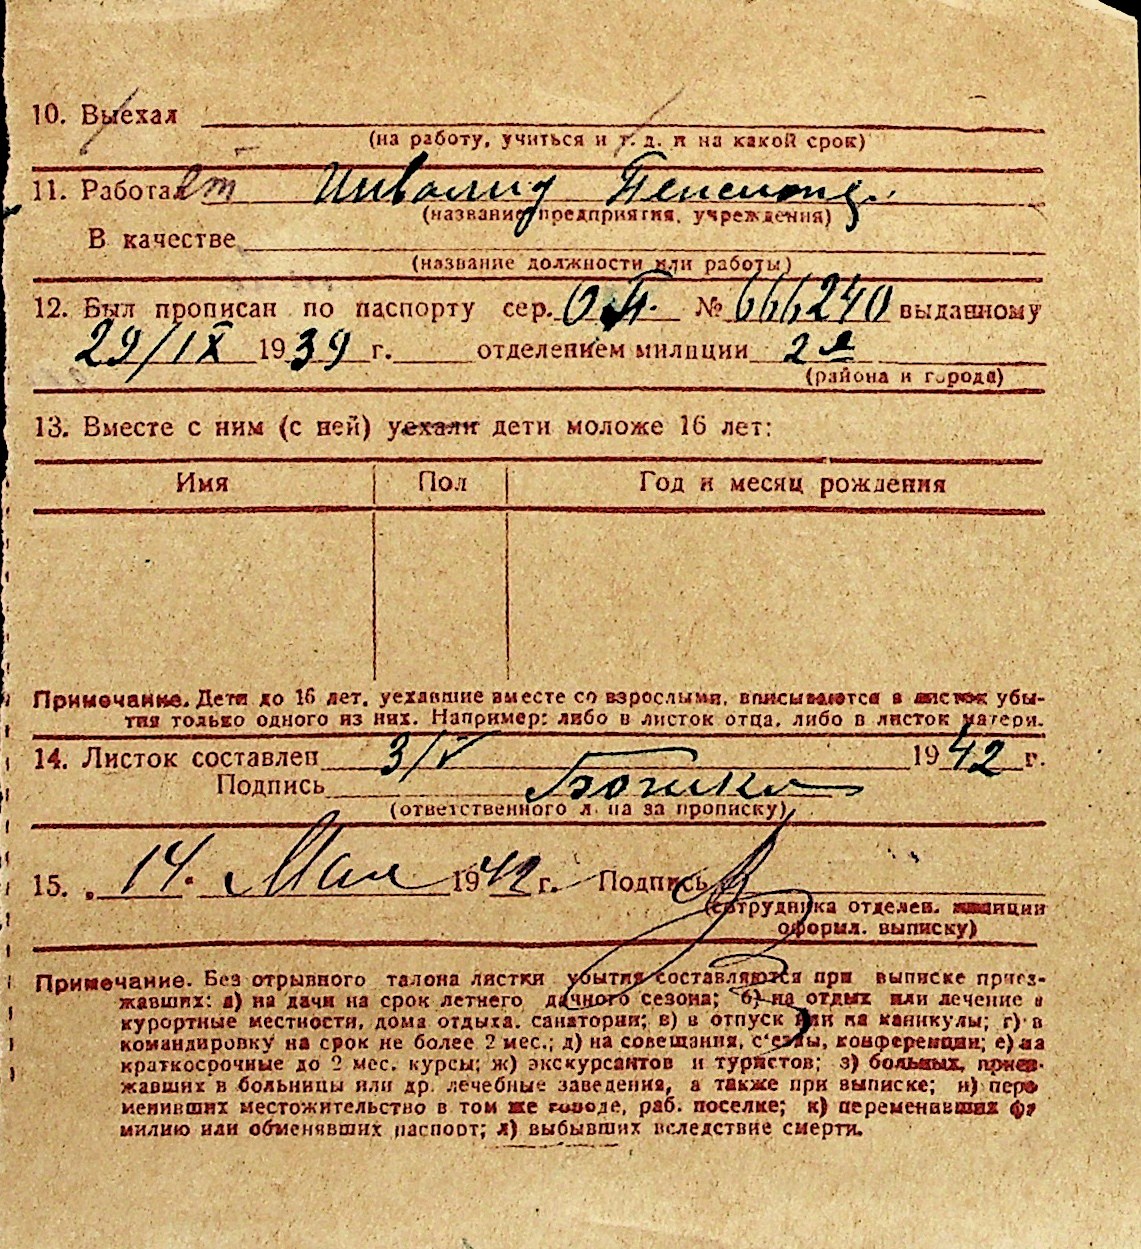 10. Выехал
(на работу, учиться и т. д. и на какой срок)
11. Работает Инвалид Пенсионер.
(название предприятия, учреждения)
В качестве
(название должности или работы)
12. Был прописан по паспорту сер. О.П. № 666240 выданному
29/IX 1939 г. отделением милиции 2й
(района и города)
13. Вместе с ним (с ней) уехали дети моложе 16 лет:
Имя Пол Год и месяц рождения
Примечание. Дети до 16 лет, уехавшие вместе со взрослыми, вписываются в листок убы-
тия только одного из них. Например: либо в листок отца, либо в листок матери.
14. Листок составлен 3/V 1942 г.
Подпись
(ответственного л. ца за прописку)
15. „ 14. Мая 1942 г. Подпись
(сотрудника отделен. милиции
оформл. выписку)
Примечание. Без отрывного талона листки убытия составляются при выписке приез-
жавших: а) на дачи на срок летнего дачного сезона; б) на отдых или лечение в
курортные местности, дома отдыха, санатории; в) в отпуск или на каникулы; г) в
командировку на срок не более 2 мес.; д) на совещания, с'езды, конференции; е) на
краткосрочные до 2 мес. курсы; ж) экскурсантов и туристов; з) больных, приез-
жавших в больницы или др. лечебные заведения, а также при выписке; и) пере
менивших местожительство в том же городе, раб. поселке; к) переменивших фа
милию или обменявших паспорт; л) выбывших вследствие смерти.